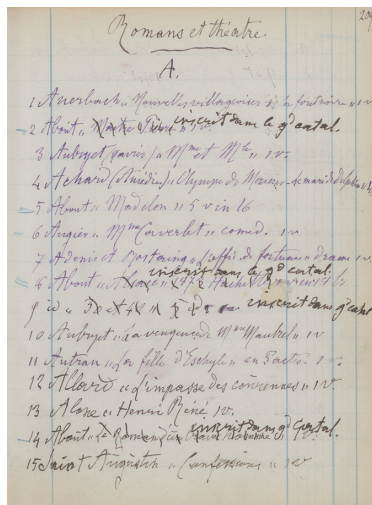 209
Romans et théâtre.
A.
1 Auerbach « Nouvelles villageoises de la forêt noire » 1 v
2 About « inscrit dans le gd catal.
3 Aubryet (xavier) « Mme et Mlle » 1 v.
4 Achard (Amédée) « Olympe de Mézières - le mari de Delphine » 1 v
5 About « Madelon » 5 v in 16
6 Augier « Mme Caverlet » comed. 1 v
7 Adenis et Rostaing « coffre de fortune » drame 1 v.
8 About « inscrit dans le gd catal.
9 id « inscrit dans gd catal
10 Aubryet « la vengeance de Mme Maubrel » 1 v
11 Autran « La fille d'Eschyle » en 5 actes 1 v.
12 Allard « L'impasse des couronnes » 1 v
13 Alone « Henri Réné 1 v.
14 About « Le Roman d'un inscrit dans gd Catal.
15 Saint Augustin « Confessions » 1 v